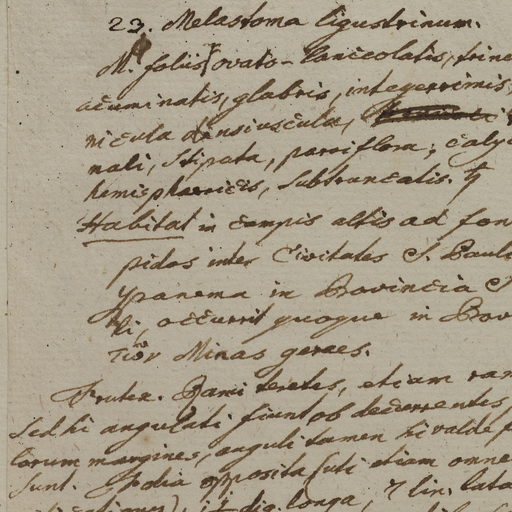 23. Melastoma ligustrinum.
M. foliis ovato-lanceolatis, trine
acuminatis, glabris, integerrimis,
nicula densiuscula,
nali, stipata, parviflora; calyc
hemisphaericis, subtruncatis. ♄
Habitat in campis altis ad fon
pidos inter Civitates S. Paul
Ypanema in Provincia S
li, occurrit quoque in Prov
Minas geraes.
Frutex. Rami teretes, etiam ram
sed hi angulati fiunt ob decurrentes
lorum margines, anguli tamen hi valde
sunt. Folia opposita (uti etiam omne
dig. longa, 7 lin. lata